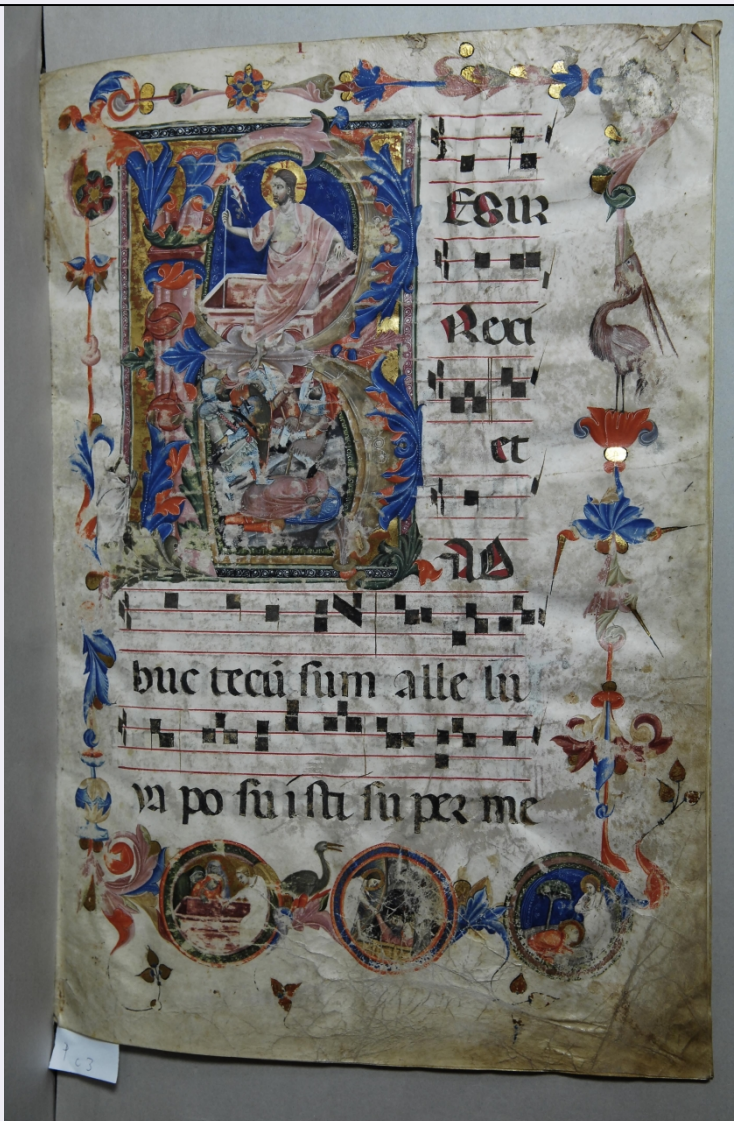 RESUR
Rexi
et
AD
huc tecū sum alle lu
ya po su i sti su per me